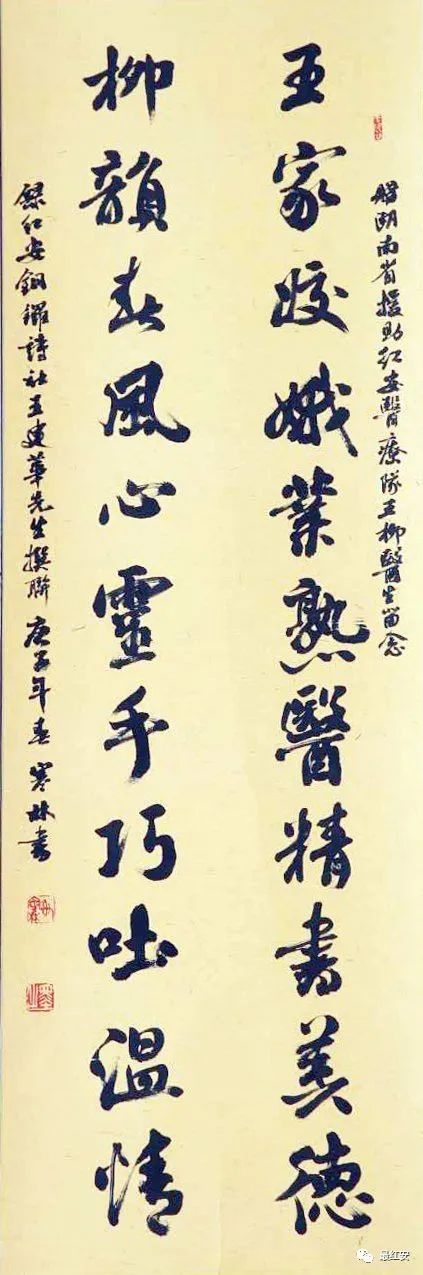 赠湖南省援助红安醫療隊王柳醫生留念
王家姣娥業熟醫精書美德
柳韻春風心靈手巧吐温情
録红安銅鑼詩社王建華先生撰联 庚子年春 寒林書
最红安